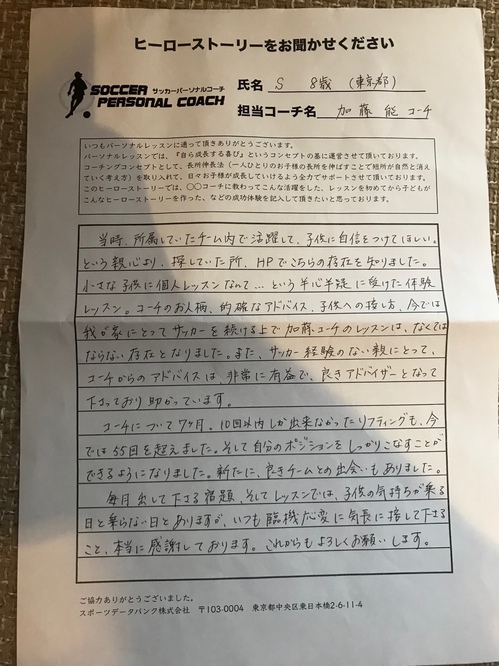 ヒーローストーリーをお聞かせください
SOCCER サッカーパーソナルコーチ
PERSONAL COACH
氏名 S 8歳 (東京都)
担当コーチ名 加藤 能 コーチ
いつもパーソナルレッスンに通って頂きありがとうございます。
パーソナルレッスンでは、『自ら成長する喜び』というコンセプトの基に運営させて頂いております。
コーチングコンセプトとして、長所伸長法（一人ひとりのお子様の長所を伸ばすことで短所が自然と消え
ていく考え方）を取り入れて、日々お子様が成長していけるよう全力でサポートさせて頂いております。
このヒーローストーリーでは、〇〇コーチに教わってこんな活躍をした、レッスンを初めてから子どもが
こんなヒーローストーリーを作った、などの成功体験を記入して頂きたいと思っております。
当時、所属していたチーム内で活躍して、子供に自信をつけてほしい。
という親心より、探していた所、HPでこちらの存在を知りました。
小さな子供に個人レッスンなんて…という半心半疑に受けた体験
レッスン。コーチのお人柄、的確なアドバイス、子供への接し方、今では
我が家にとってサッカーを続ける上で加藤コーチのレッスンは、なくては
ならない存在となりました。また、サッカー経験のない親にとって、
コーチからのアドバイスは、非常に有益で、良きアドバイザーとなって
下さっており助かっています。
コーチについて7ヶ月、10回以内しか出来なかったリフティングも、今
では55回を超えました。そして自分のポジションをしっかりこなすことが
できるようになりました。新たに、良きチームとの出会いもありました。
毎月出して下さる宿題、そしてレッスンでは、子供の気持ちが乗る
日と乗らない日とありますが、いつも臨機応変に気長に接して下さる
こと、本当に感謝しております。これからもよろしくお願いします。
ご協力ありがとうございました。
スポーツデータバンク株式会社 〒103-0004 東京都中央区東日本橋2-6-11-4